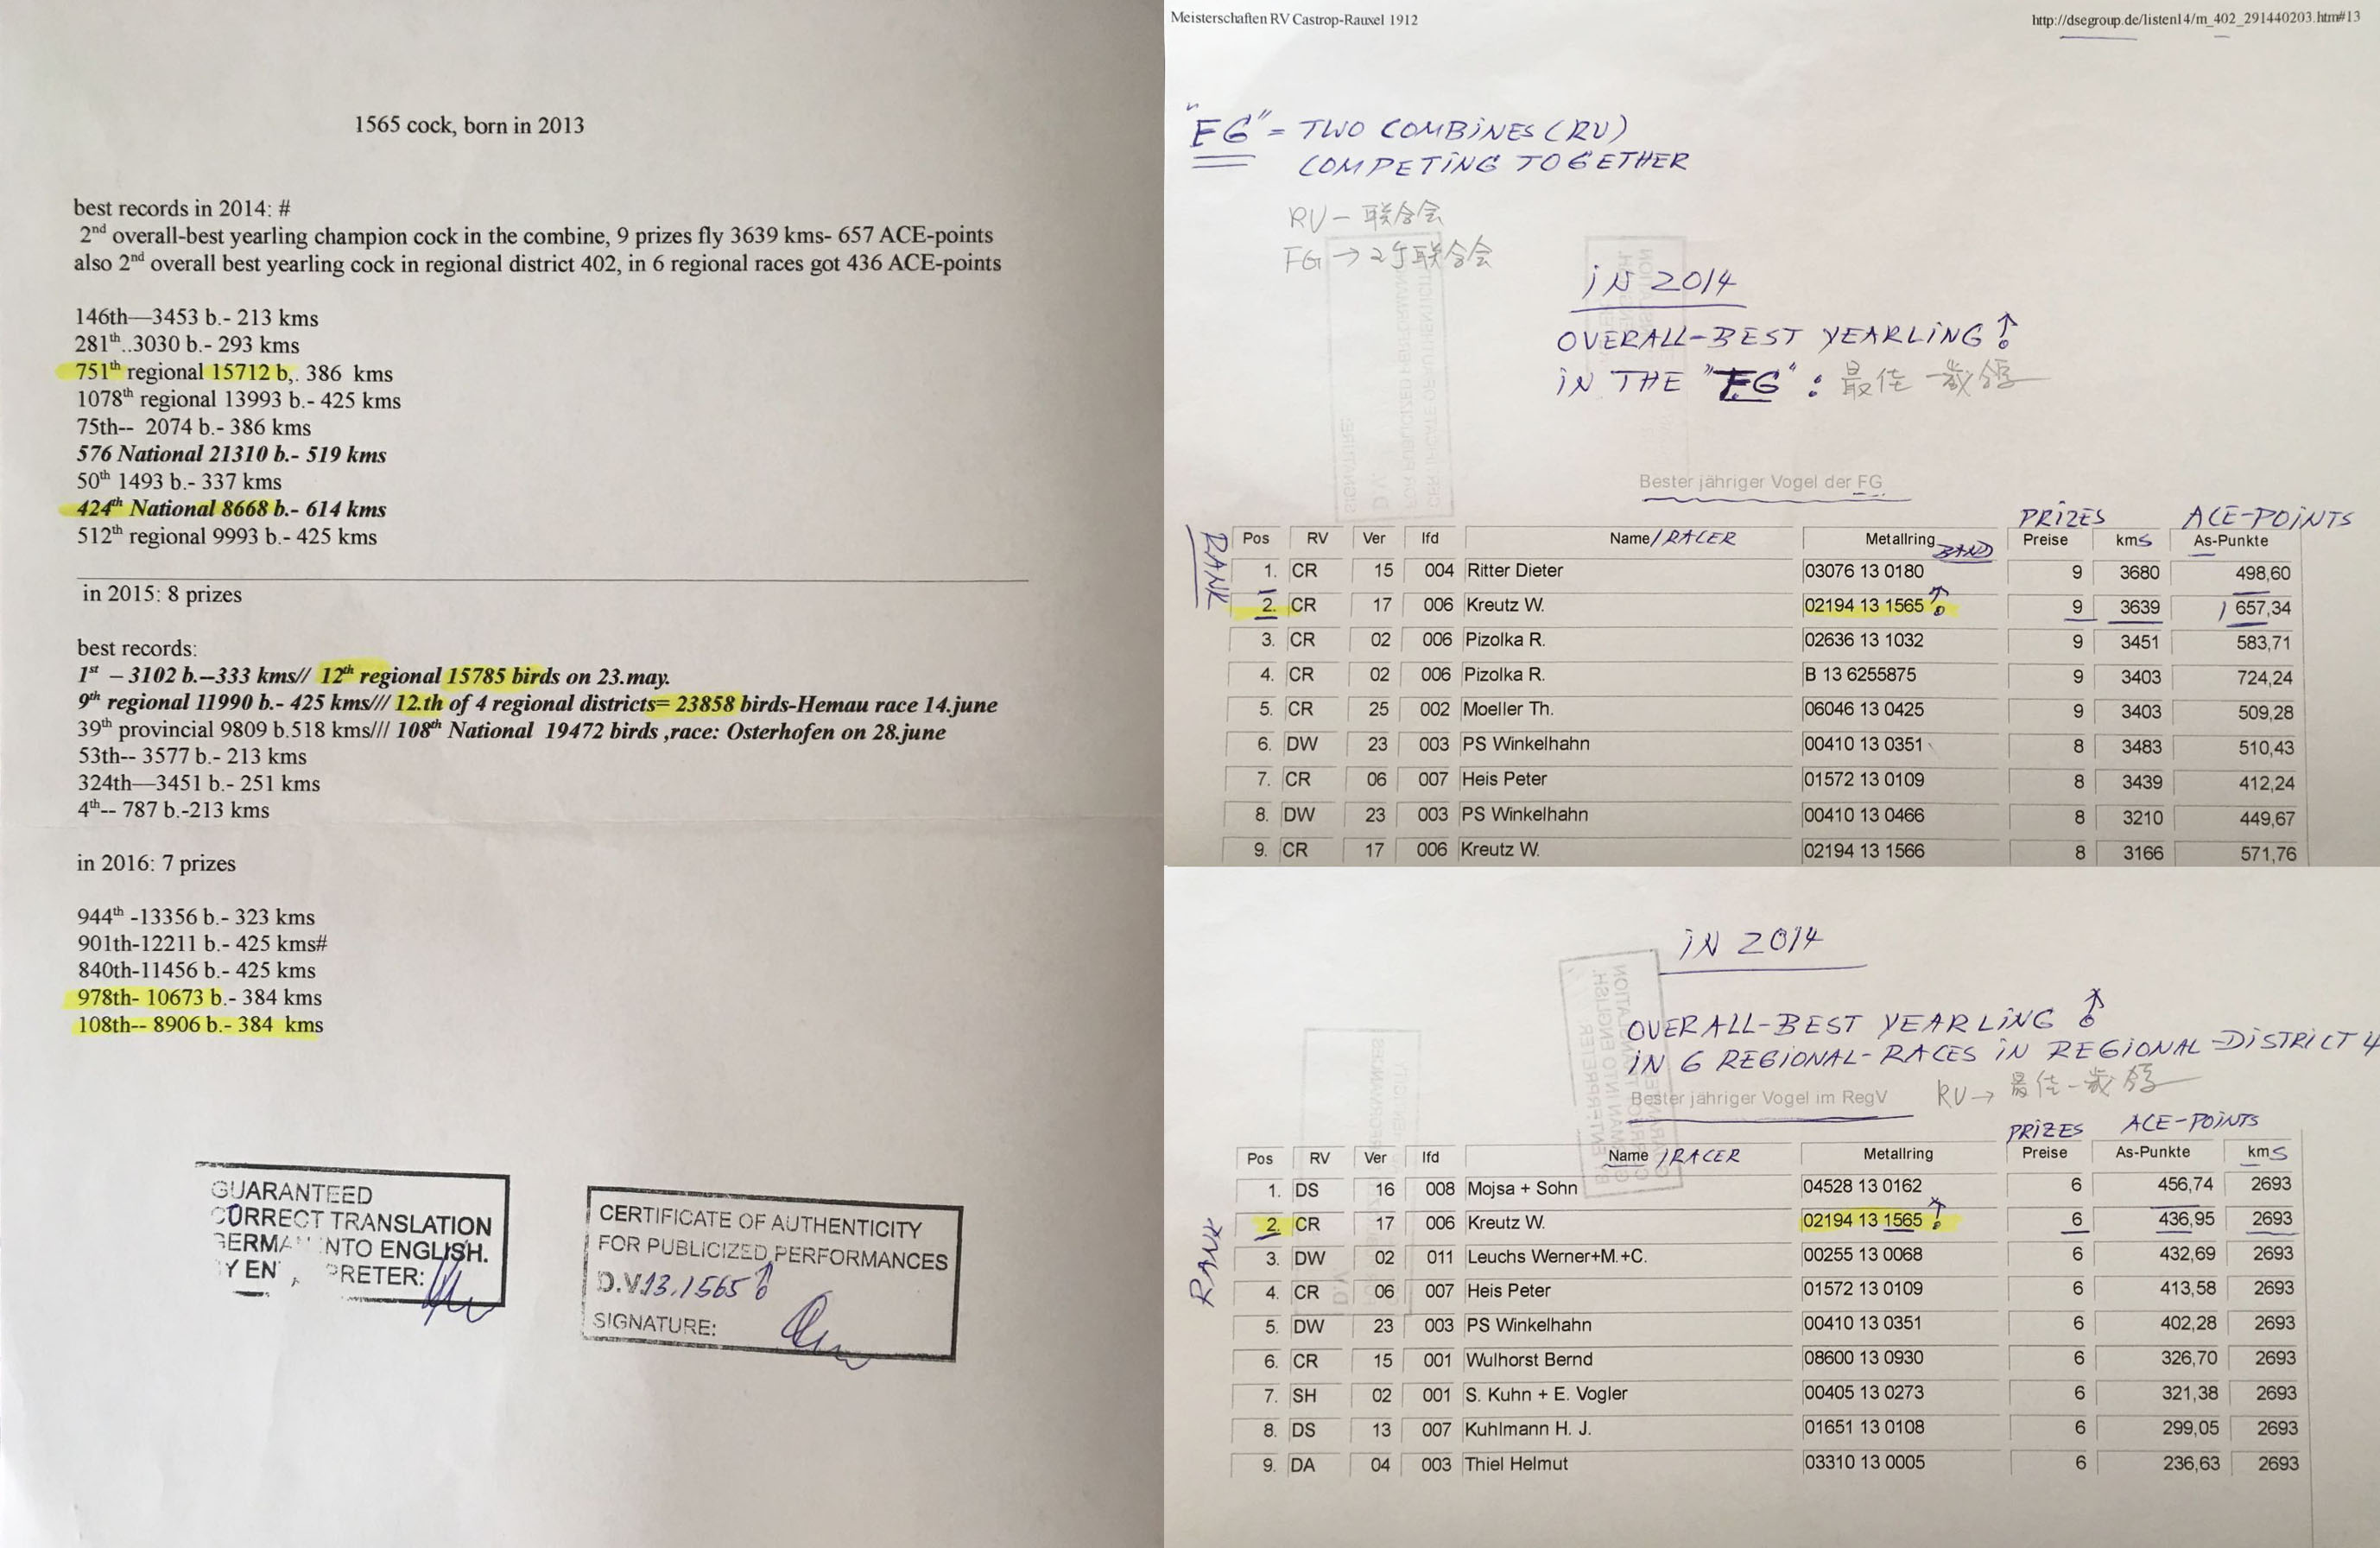 1565 cock, born in 2013
best records in 2014: #
2nd overall-best yearling champion cock in the combine, 9 prizes fly 3639 kms- 657 ACE-points
also 2nd overall best yearling cock in regional district 402, in 6 regional races got 436 ACE-points
146th—3453 b.- 213 kms
281th..3030 b.- 293 kms
751th regional 15712 b,. 386 kms
1078th regional 13993 b.- 425 kms
75th-- 2074 b.- 386 kms
576 National 21310 b.- 519 kms
50th 1493 b.- 337 kms
424th National 8668 b.- 614 kms
512th regional 9993 b.- 425 kms
in 2015: 8 prizes
best records:
1st – 3102 b.--333 kms// 12th regional 15785 birds on 23.may.
9th regional 11990 b.- 425 kms/// 12.th of 4 regional districts= 23858 birds-Hemau race 14.june
39th provincial 9809 b.518 kms/// 108th National 19472 birds ,race: Osterhofen on 28.june
53th-- 3577 b.- 213 kms
324th—3451 b.- 251 kms
4th-- 787 b.-213 kms
in 2016: 7 prizes
944th -13356 b.- 323 kms
901th-12211 b.- 425 kms#
840th-11456 b.- 425 kms
978th- 10673 b.- 384 kms
108th-- 8906 b.- 384 kms
GUARANTEED
CORRECT TRANSLATION
GERMA INTO ENGLISH.
Y EN PRETER:
CERTIFICATE OF AUTHENTICITY
FOR PUBLICIZED PERFORMANCES
D.V.13.1565
SIGNATURE:
Meisterschaften RV Castrop-Rauxel 1912 http://dsegroup.de/listen14/m_402_291440203.htm#13
"FG" = TWO COMBINES (RV)
COMPETING TOGETHER
RV – 联合会
FG → 2个联合会
IN 2014
OVERALL-BEST YEARLING
IN THE "FG": 最佳一歲鴿
Bester jähriger Vogel der FG
PRIZES ACE-POINTS
RANK
Pos RV Ver lfd Name/RACER Metallring BAND Preise kms As-Punkte
1. CR 15 004 Ritter Dieter 03076 13 0180 9 3680 498,60
2. CR 17 006 Kreutz W. 02194 13 1565 9 3639 657,34
3. CR 02 006 Pizolka R. 02636 13 1032 9 3451 583,71
4. CR 02 006 Pizolka R. B 13 6255875 9 3403 724,24
5. CR 25 002 Moeller Th. 06046 13 0425 9 3403 509,28
6. DW 23 003 PS Winkelhahn 00410 13 0351 8 3483 510,43
7. CR 06 007 Heis Peter 01572 13 0109 8 3439 412,24
8. DW 23 003 PS Winkelhahn 00410 13 0466 8 3210 449,67
9. CR 17 006 Kreutz W. 02194 13 1566 8 3166 571,76
IN 2014
OVERALL-BEST YEARLING
IN 6 REGIONAL-RACES IN REGIONAL-DISTRICT 4
Bester jähriger Vogel im RegV RV → 最佳一歲鴿
PRIZES ACE-POINTS
RANK
Pos RV Ver lfd Name /RACER Metallring Preise As-Punkte kms
1. DS 16 008 Mojsa + Sohn 04528 13 0162 6 456,74 2693
2. CR 17 006 Kreutz W. 02194 13 1565 6 436,95 2693
3. DW 02 011 Leuchs Werner+M.+C. 00255 13 0068 6 432,69 2693
4. CR 06 007 Heis Peter 01572 13 0109 6 413,58 2693
5. DW 23 003 PS Winkelhahn 00410 13 0351 6 402,28 2693
6. CR 15 001 Wulhorst Bernd 08600 13 0930 6 326,70 2693
7. SH 02 001 S. Kuhn + E. Vogler 00405 13 0273 6 321,38 2693
8. DS 13 007 Kuhlmann H. J. 01651 13 0108 6 299,05 2693
9. DA 04 003 Thiel Helmut 03310 13 0005 6 236,63 2693